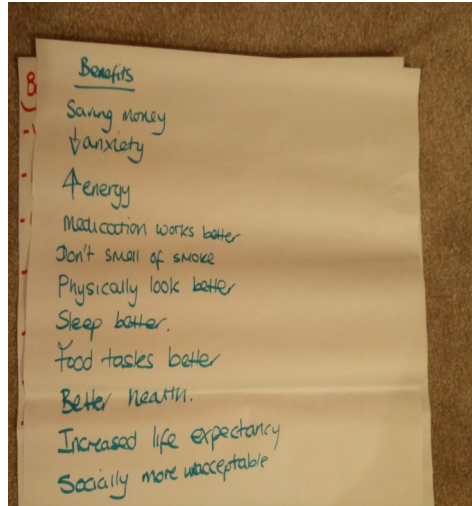 Benefits
Saving money
↓ anxiety
↑ energy
Medication works better
Don't smell of smoke
Physically look better
Sleep better.
Food tastes better
Better health.
Increased life expectancy
Socially more acceptable
B